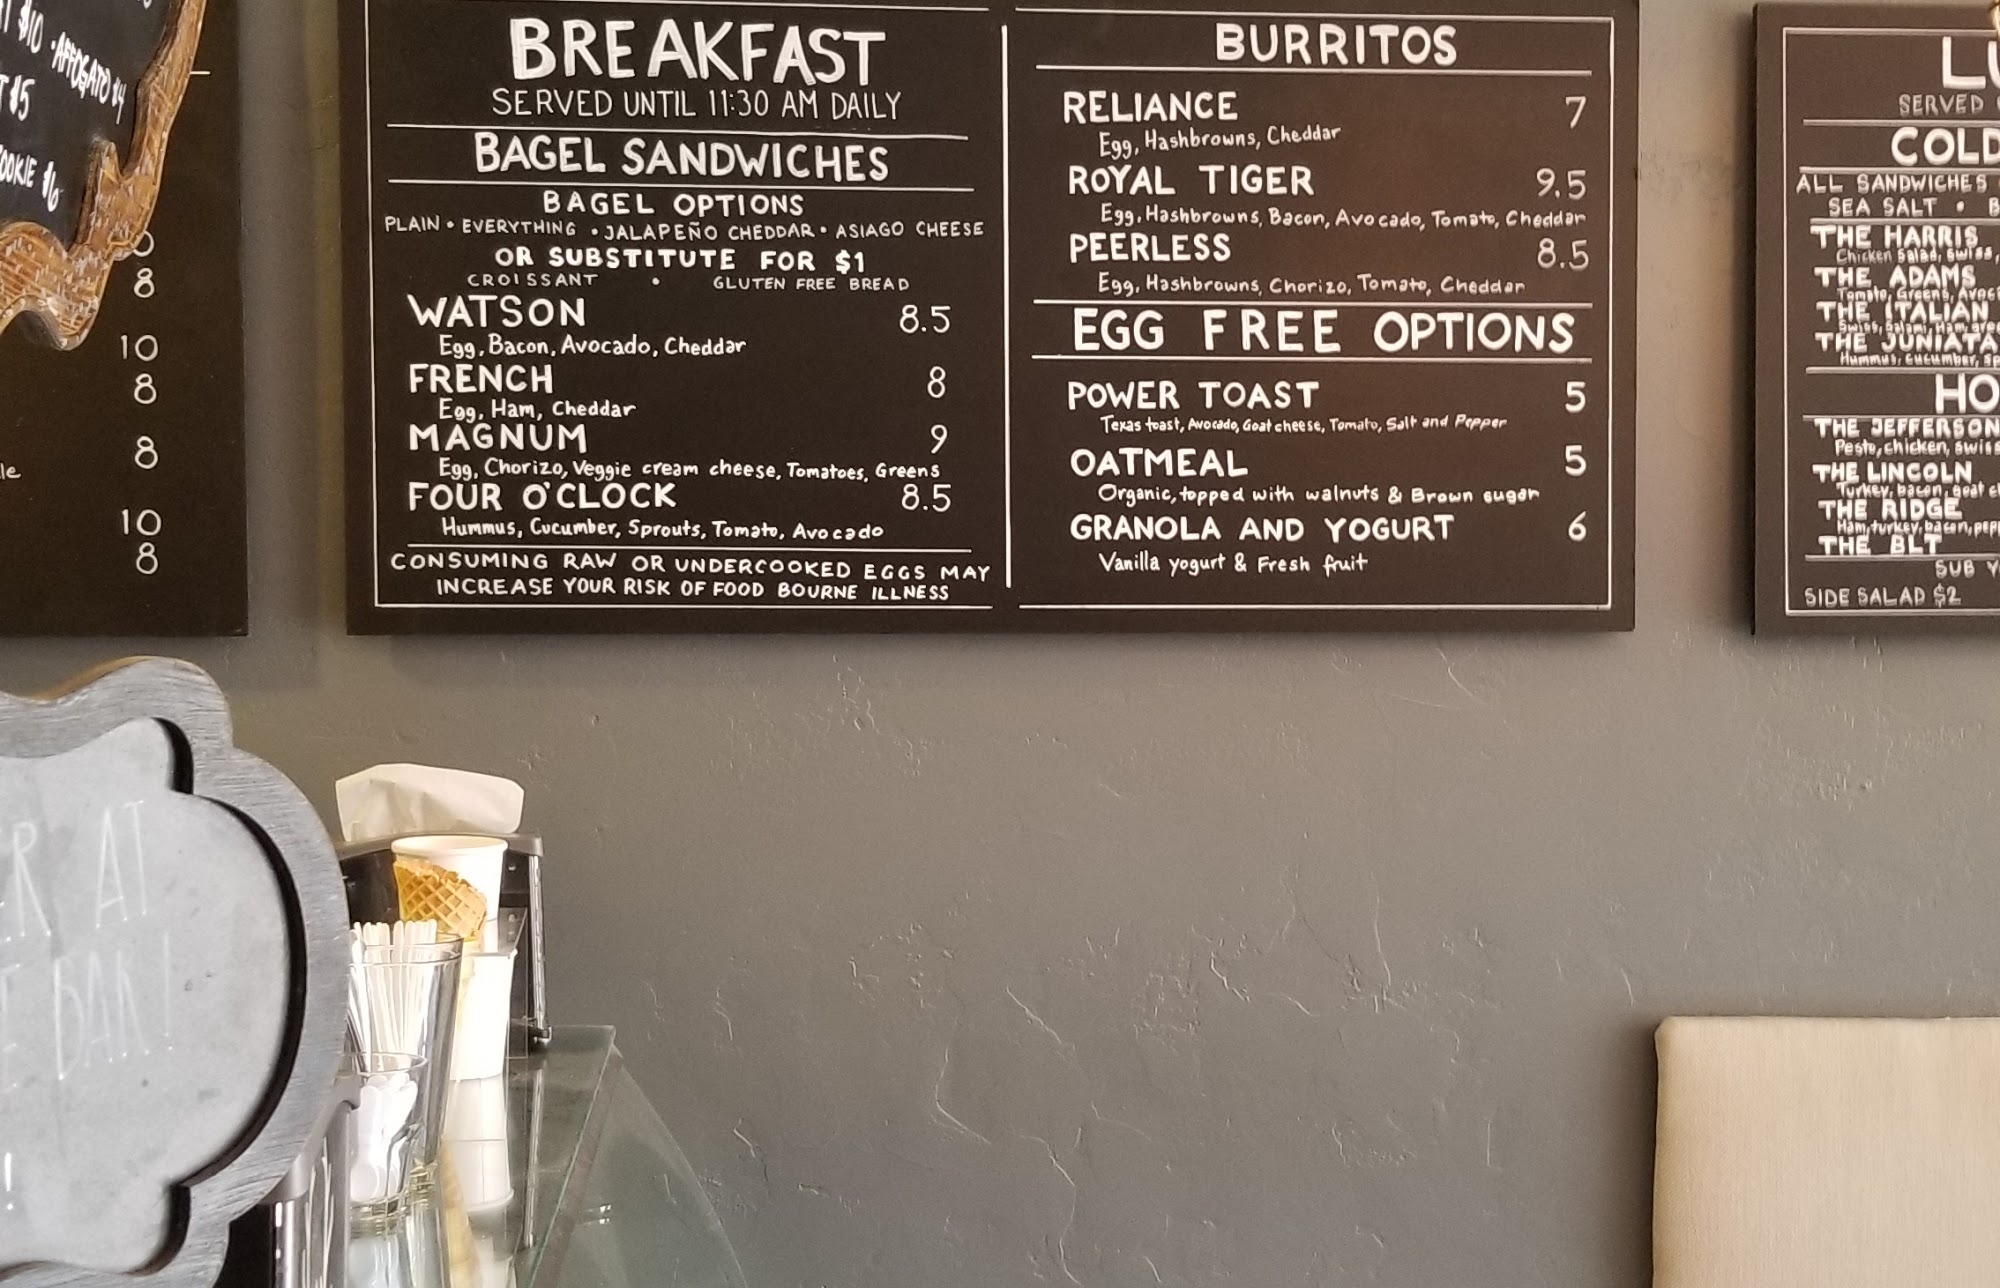 $10 · AFFOGATO $4
$5
$6
8
10
8
8
10
8
BREAKFAST
SERVED UNTIL 11:30 AM DAILY
BAGEL SANDWICHES
BAGEL OPTIONS
PLAIN • EVERYTHING • JALAPEÑO CHEDDAR • ASIAGO CHEESE
OR SUBSTITUTE FOR $1
CROISSANT • GLUTEN FREE BREAD
WATSON 8.5
Egg, Bacon, Avocado, Cheddar
FRENCH 8
Egg, Ham, Cheddar
MAGNUM 9
Egg, Chorizo, Veggie cream cheese, Tomatoes, Greens
FOUR O'CLOCK 8.5
Hummus, Cucumber, Sprouts, Tomato, Avocado
CONSUMING RAW OR UNDERCOOKED EGGS MAY
INCREASE YOUR RISK OF FOOD BOURNE ILLNESS
BURRITOS
RELIANCE 7
Egg, Hashbrowns, Cheddar
ROYAL TIGER 9.5
Egg, Hashbrowns, Bacon, Avocado, Tomato, Cheddar
PEERLESS 8.5
Egg, Hashbrowns, Chorizo, Tomato, Cheddar
EGG FREE OPTIONS
POWER TOAST 5
Texas toast, Avocado, Goat cheese, Tomato, Salt and Pepper
OATMEAL 5
Organic, topped with walnuts & Brown sugar
GRANOLA AND YOGURT 6
Vanilla yogurt & Fresh fruit
SERVED
COLD
ALL SANDWICHES
SEA SALT •
THE HARRIS
Chicken Salad, Swiss,
THE ADAMS
Tomato, Greens,
THE ITALIAN
Swiss, Salami, Ham,
THE JUNIATA
Hummus, Cucumber,
THE JEFFERSON
Pesto, chicken, swiss
THE LINCOLN
Turkey, bacon, goat
THE RIDGE
Ham, turkey, bacon,
THE BLT
SUB
SIDE SALAD $2
AT
BAR!
!